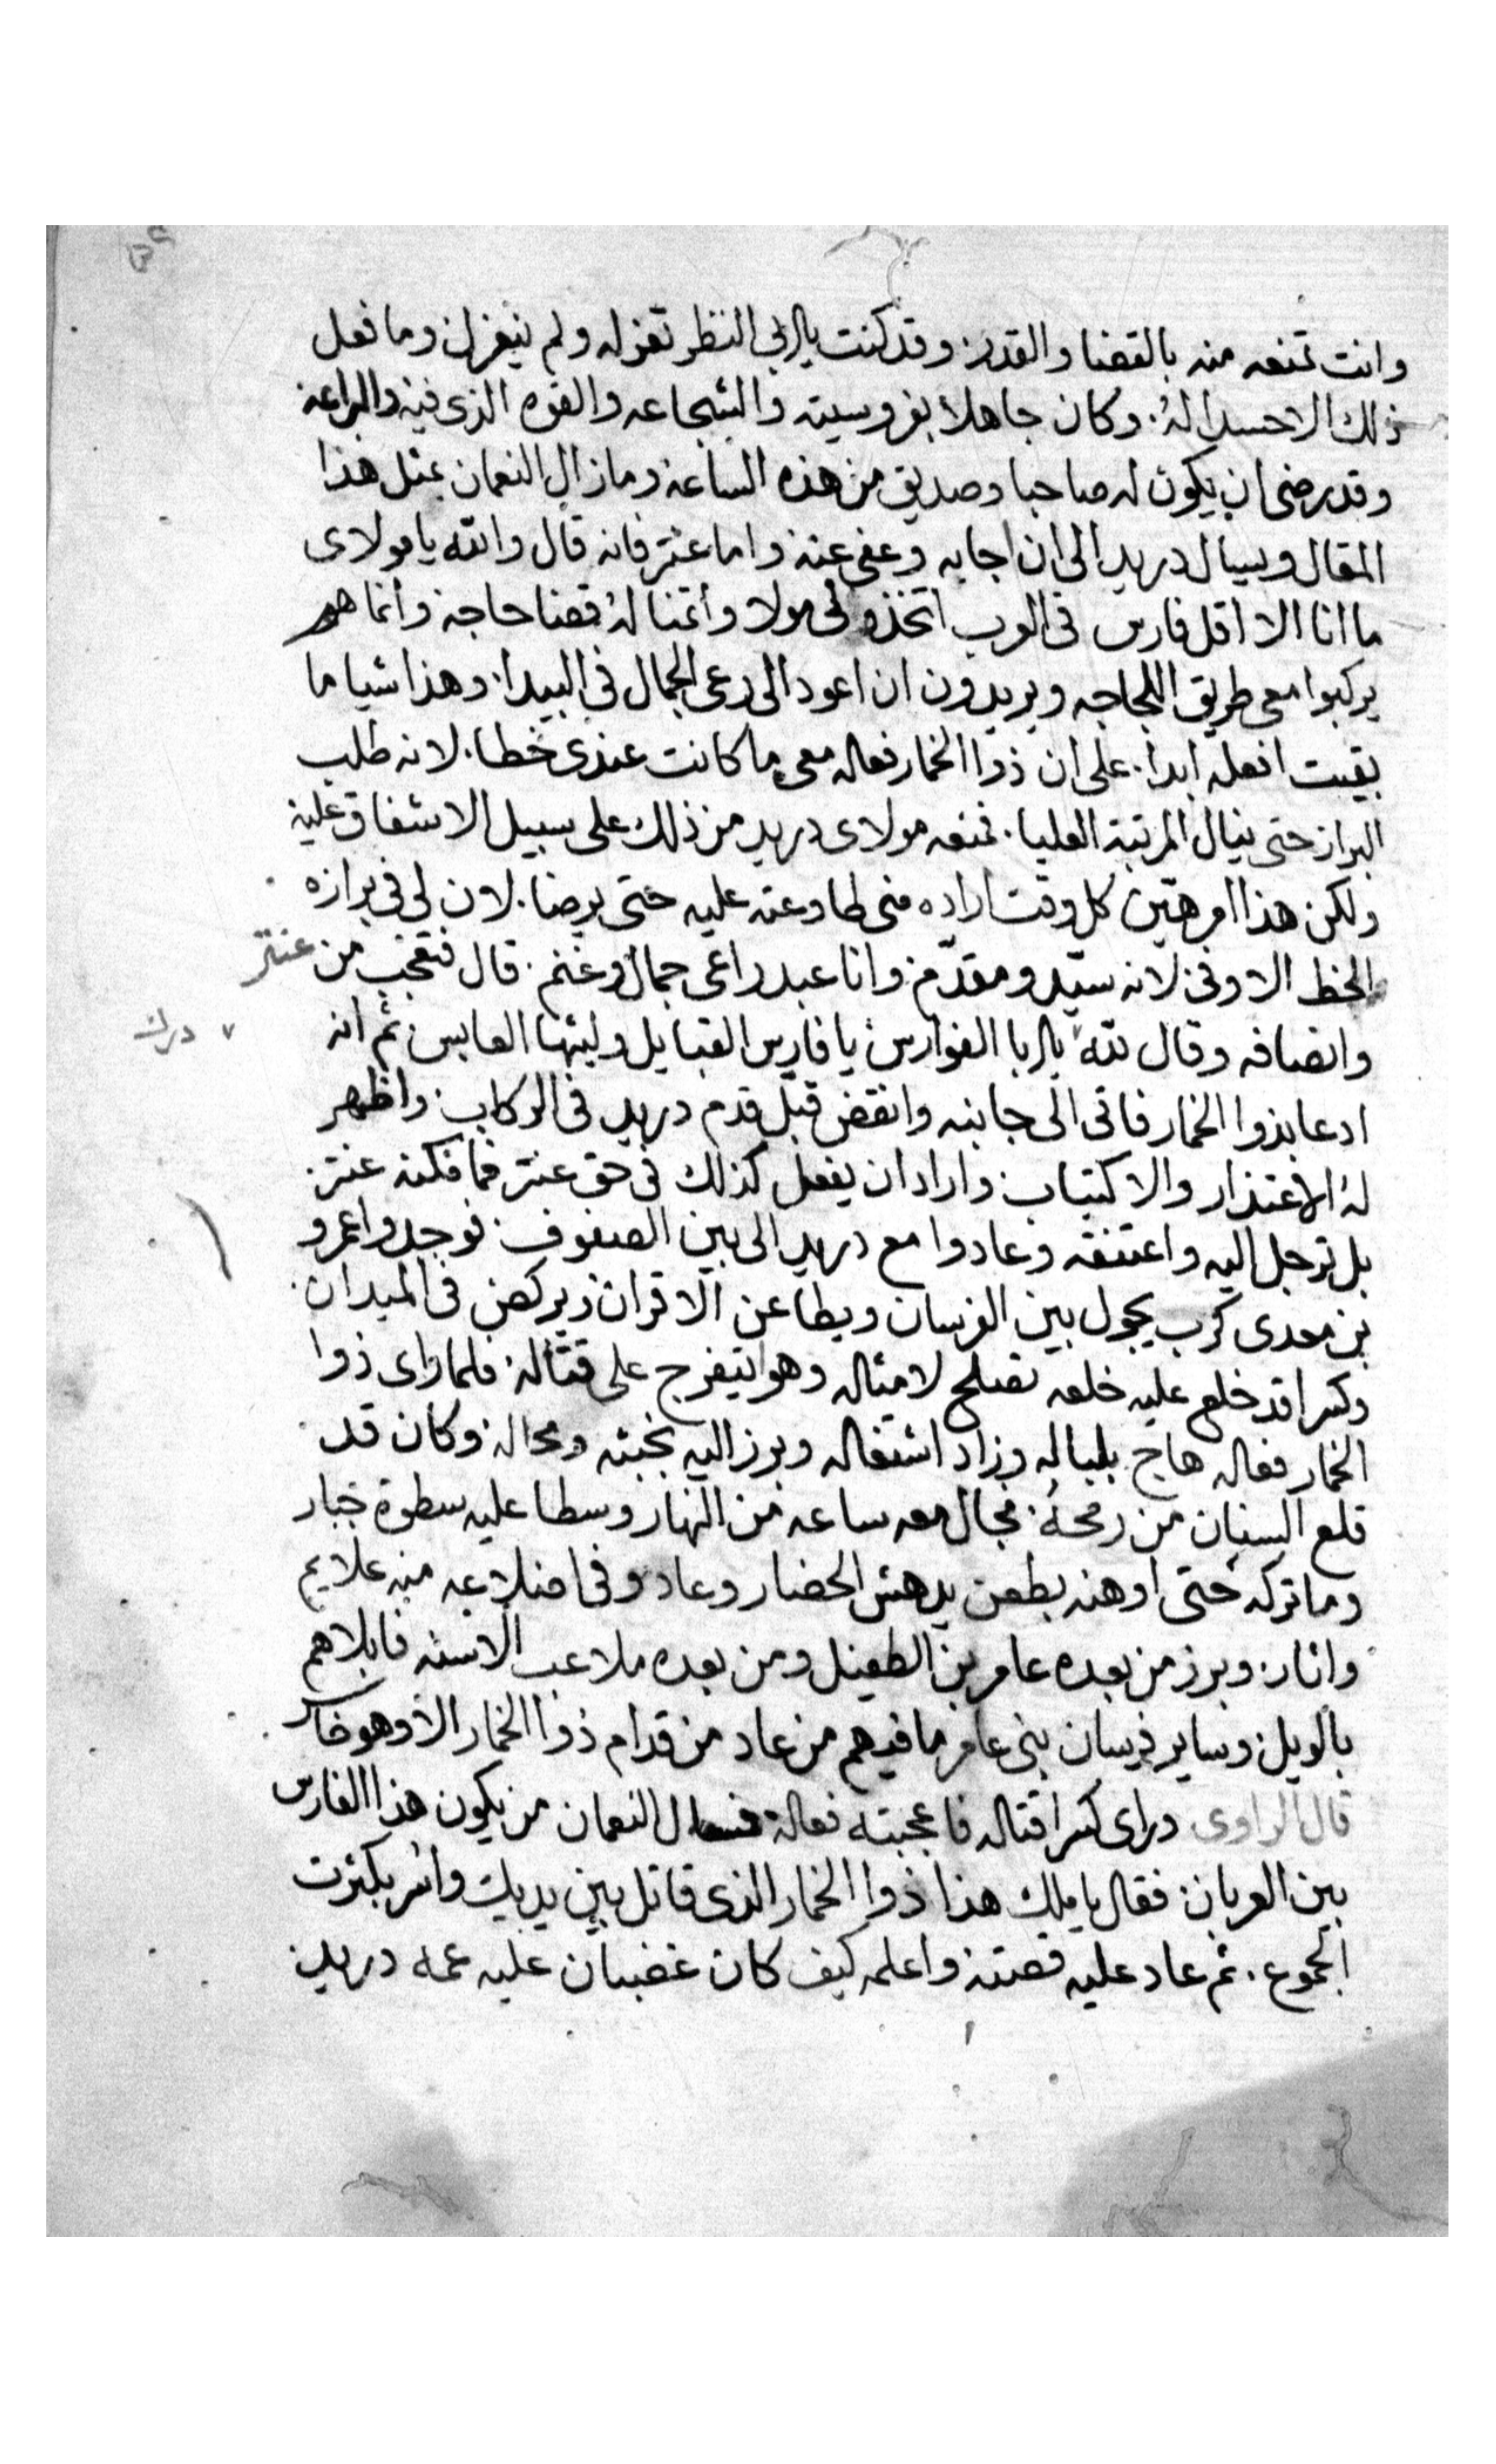 وانت تمنعه منه بالقضا والقدر. وقد كنت بالنظر تعزله ولم ينعزل وما فعل
ذلك الاحسدا له. وكان جاهلا بفروسيته والشجاعه والقوه الذى فيه والبراعه
وقد رضى ان يكون له صاحبا وصديق من هذه الساعه وما زال النعمان بمثل هذا
المقال ويسال دريد الى ان اجابه وعفى عنه واما عنتر فانه قال والله يا مولاى
ما انا الا اقل فارس فى العرب اتخذه لى مولا وأتمنا له قضا حاجة وأنما هم
يركبوا معى طريق اللجاجه ويريدون ان اعود الى رعى الجمال فى البيدا. وهذا شيا ما
بقيت افعله ابدا. على ان ذوا الخمار فعاله معى ما كانت عندى خطا. لانه طلب
البراز حتى ينال المرتبة العليا. فمنعه مولاى دريد من ذلك على سبيل الاشفاق عليه
ولكن هذا امر هين كل وقت اراده منى طاوعته عليه حتى يرضا. لان لى فى برازه
الحظ الاوفى لانه سيّد ومقدّم وانا عبد راعى جمال وغنم. قال فتعجب من عنتر
وانصافه وقال لله يا ابا الفوارس يا فارس القبايل وليثها العابس ثم انه
ادعا بذوا الخمار فاتى الى جانبه وانقض قبّل قدم دريد فى الركاب. واظهر
له الاعتذار والاكتياب واراد ان يفعل كذلك فى حق عنتر فما مكنه عنتر.
بل ترجل اليه واعتنقه وعادوا مع دريد الى بين الصفوف. فوجدوا عمرو
بن معدى كرب يجول بين الفرسان ويطاعن الاقران ويركض فى الميدان.
وكسرا قد خلع عليه خلعه تصلح لامثاله وهو ايتفرج على قتاله فلما راى ذوا
الخمار فعاله هاج بلباله وزاد اشتغاله وبرز اليه بخبثه ومحاله وكان قد
قلع السنان من رمحه. فجال معه ساعه من النهار وسطا عليه سطوة جبار
وما تركه حتى اوهنه بطعن يدهش الحضار وعاد وفى اضلاعه منه علايم
واثار. وبرز من بعده عامر بن الطفيل ومن بعده ملاعب الاسنه فابلاهم
بالويل. وساير فرسان بنى عامر ما فيهم من عاد من قدام ذوا الخمار الا وهو خاسر
قال الراوى وراى كسرا قتاله فاعجبته فعاله فسال النعمان من يكون هذا الفارس
بين العربان. فقال يا ملك هذا ذوا الخمار الذى قاتل بين يديك واسر بكثرت
الجموع. ثم عاد عليه قصته واعلمه كيف كان غضبان عليه عمه دريد